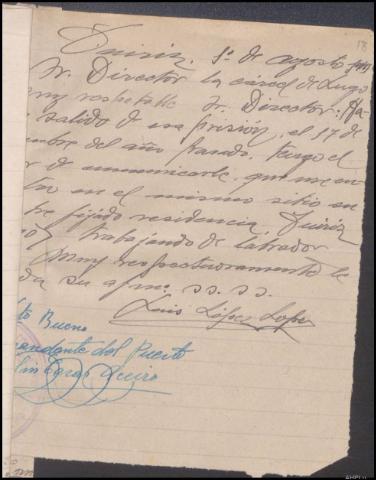 18
Quiriz, 1º de agosto
Sr. Director la carcel de Lugo
muy respetable Sr. Director: Ha-
salido de esa prisión, el 17 de
bre del año pasado, tengo el
de comunicarle que me en
en el mismo sitio en
fijado residencia, Quiriz
trabajando de labrador
Muy respetuosamente le
da su afmo. ss. ss.
Luis López López
Vto Bueno
mandante del Puesto